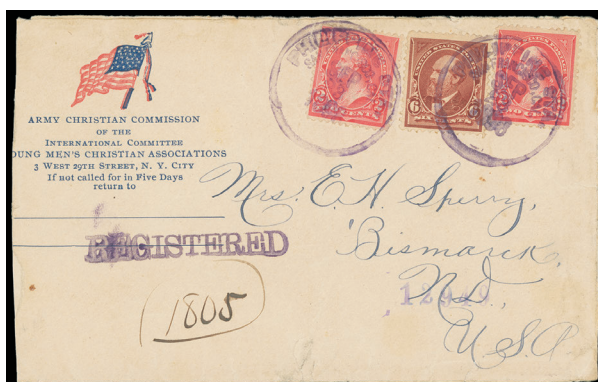 ARMY CHRISTIAN COMMISSION
OF THE
INTERNATIONAL COMMITTEE
OUNG MEN'S CHRISTIAN ASSOCIATIONS
3 WEST 29TH STREET, N. Y. CITY
If not called for in Five Days
return to
REGISTERED
1805
Mrs. E. H. Sperry,
Bismarck,
N.D.,
12949
U.S.A
2 CENTS 2
6 6
2 TWO CENTS 2